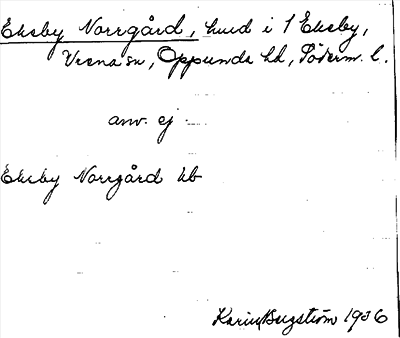 Ekeby Norrgård, hmd i 1 Ekeby,
Vrena sn, Oppunda hd, Söderm. l.
anv. ej
Ekeby Norrgård kb
Karin Bergström 1936